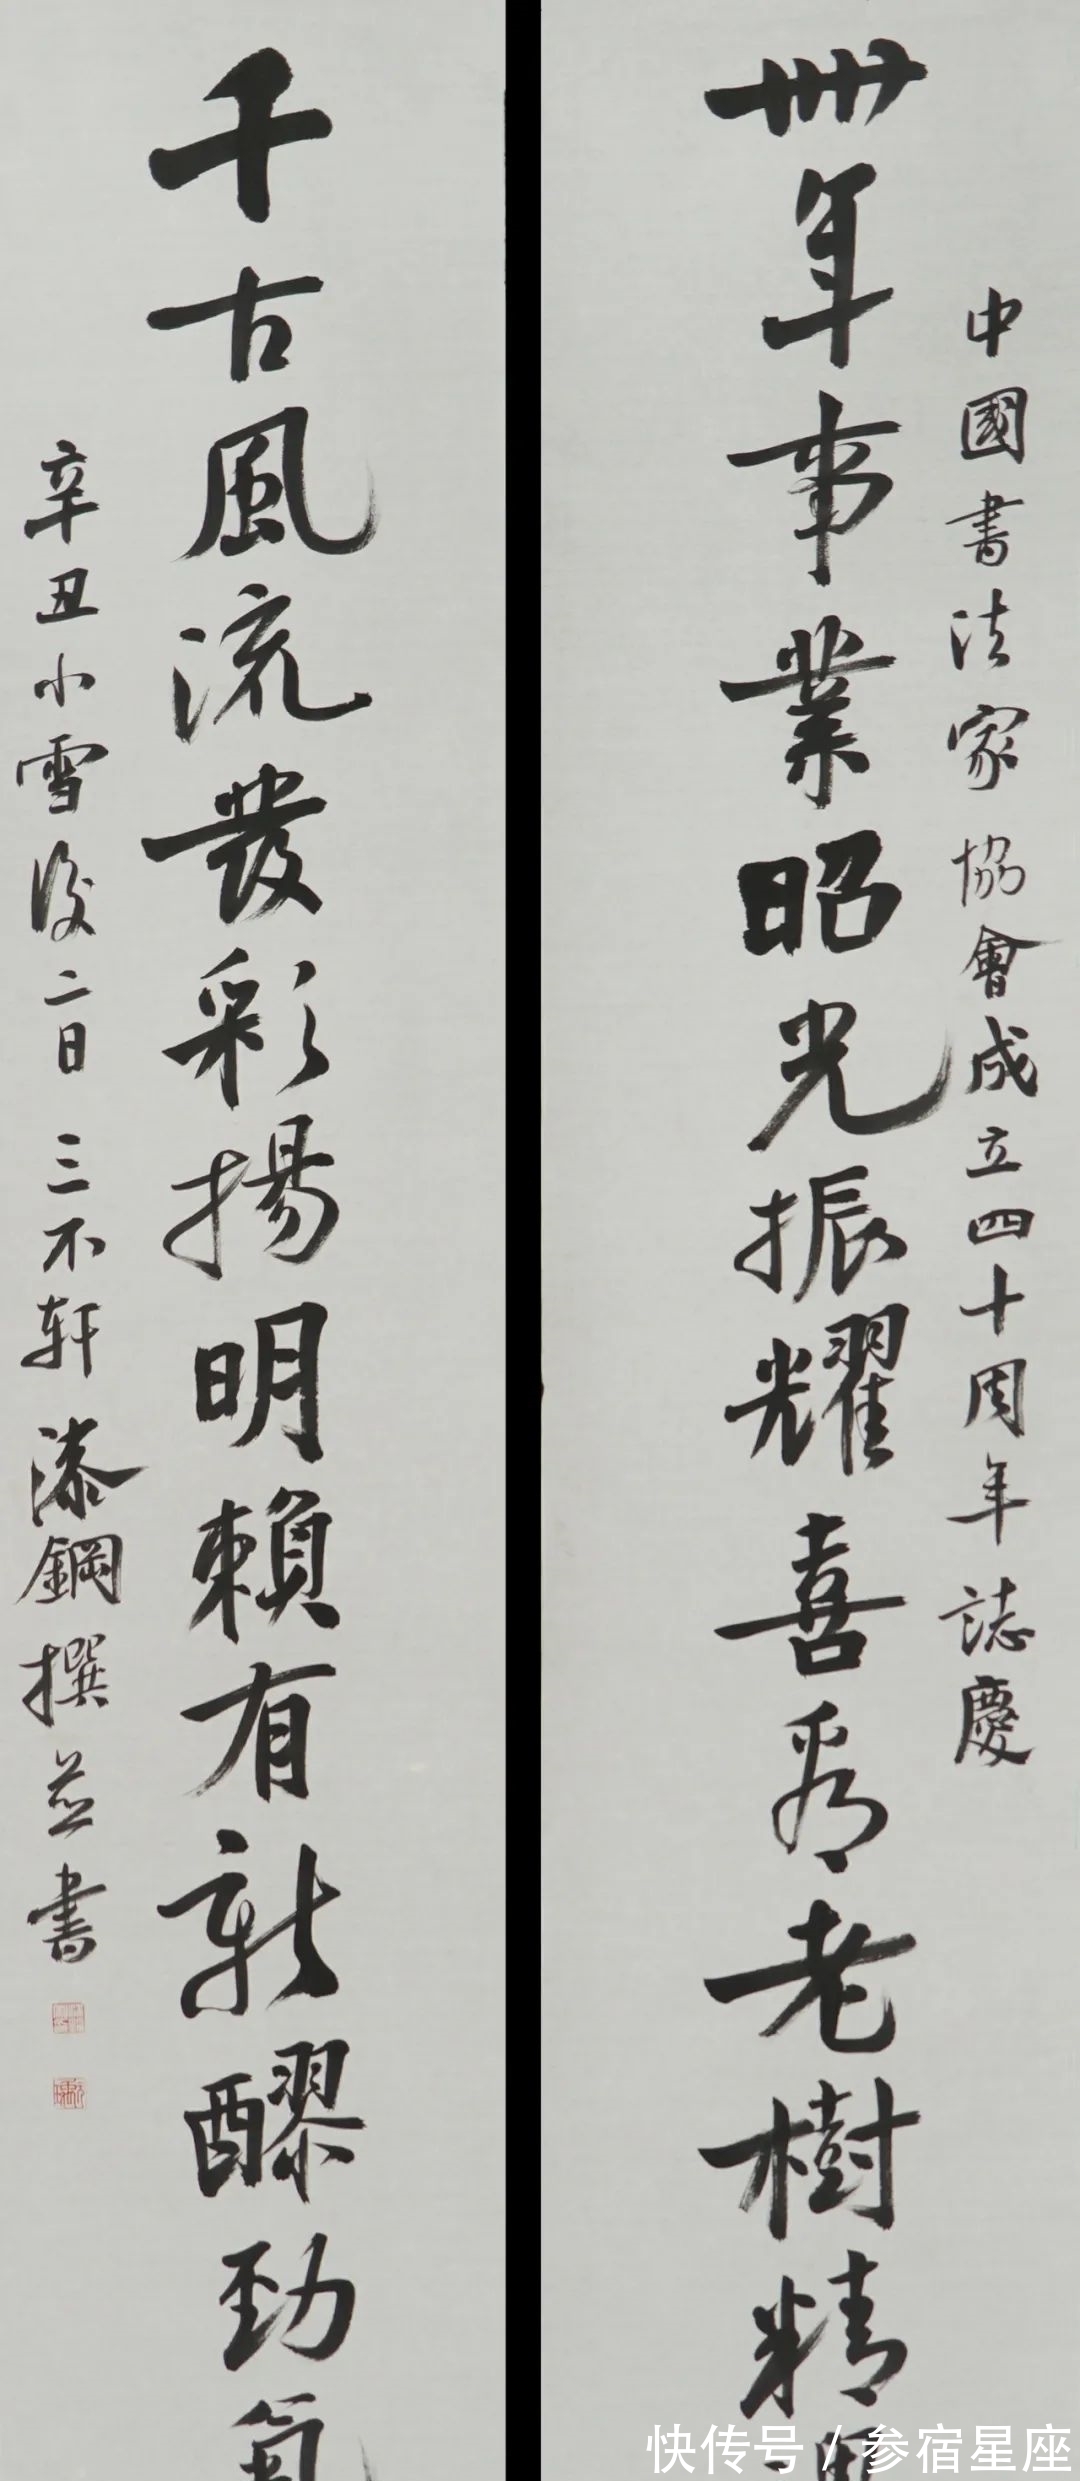 中國書法家協會成立四十周年誌慶
卌年事業昭光振耀喜看老樹精
千古風流發彩揚明賴有新醪勁氣
辛丑小雪後二日三不轩漆鋼撰並書
快传号 / 参宿星座